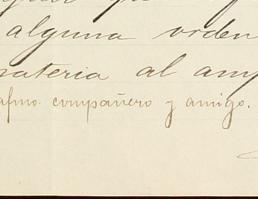 alguna orden
materia al amp
afmo. compañero y amigo.